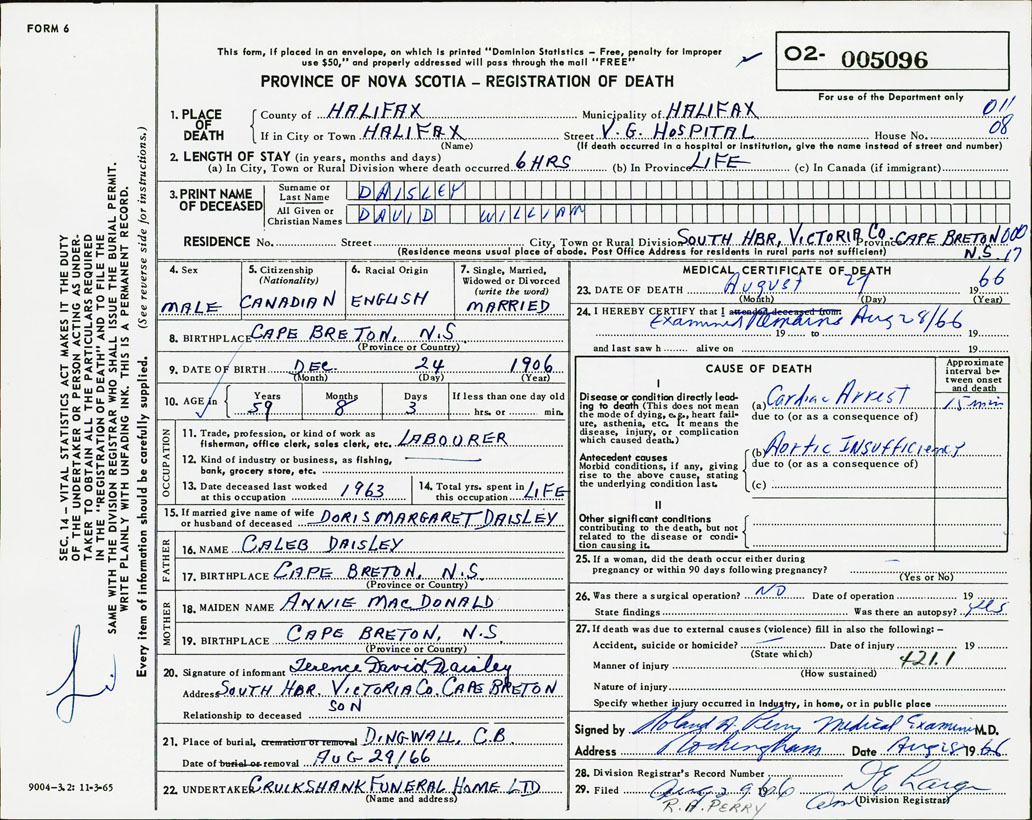 FORM 6
This form, if placed in an envelope, on which is printed "Dominion Statistics – Free, penalty for improper
use $50," and properly addressed will pass through the mail "FREE"
PROVINCE OF NOVA SCOTIA – REGISTRATION OF DEATH
02- 005096
For use of the Department only
011
08
1. PLACE OF DEATH
County of HALIFAX Municipality of HALIFAX
If in City or Town HALIFAX Street V. G. HOSPITAL House No.
(Name) (If death occurred in a hospital or institution, give the name instead of street and number)
2. LENGTH OF STAY (in years, months and days)
(a) In City, Town or Rural Division where death occurred 6 HRS (b) In Province LIFE (c) In Canada (if immigrant)
3. PRINT NAME OF DECEASED
Surname or Last Name DAISLEY
All Given or Christian Names DAVID WILLIAM
RESIDENCE No. Street City, Town or Rural Division SOUTH HBR, VICTORIA CO. Province CAPE BRETON 000
(Residence means usual place of abode. Post Office Address for residents in rural parts not sufficient) N.S. 17
4. Sex MALE
5. Citizenship (Nationality) CANADIAN
6. Racial Origin ENGLISH
7. Single, Married, Widowed or Divorced (write the word) MARRIED
8. BIRTHPLACE CAPE BRETON, N.S
(Province or Country)
9. DATE OF BIRTH DEC. 24 1906
(Month) (Day) (Year)
10. AGE in Years Months Days If less than one day old
59 8 3 hrs. or min.
OCCUPATION
11. Trade, profession, or kind of work as
fisherman, office clerk, sales clerk, etc. LABOURER
12. Kind of industry or business, as fishing,
bank, grocery store, etc.
13. Date deceased last worked at this occupation 1963
14. Total yrs. spent in this occupation LIFE
15. If married give name of wife
or husband of deceased DORIS MARGARET DAISLEY
FATHER
16. NAME CALEB DAISLEY
17. BIRTHPLACE CAPE BRETON, N.S.
(Province or Country)
MOTHER
18. MAIDEN NAME ANNIE MACDONALD
19. BIRTHPLACE CAPE BRETON, N.S.
(Province or Country)
20. Signature of informant Terence David Daisley
Address SOUTH HBR. VICTORIA CO. CAPE BRETON
Relationship to deceased SON
21. Place of burial, cremation or removal DINGWALL, C.B.
Date of burial or removal AUG 29/66
22. UNDERTAKER CRUIKSHANK FUNERAL HOME LTD
(Name and address)
MEDICAL CERTIFICATE OF DEATH
23. DATE OF DEATH AUGUST 27 1966
(Month) (Day) (Year)
24. I HEREBY CERTIFY that I attended deceased from
Examined Remains Aug 28/66
19 to 19
and last saw h alive on 19
CAUSE OF DEATH
Approximate interval between onset and death
I
Disease or condition directly leading to death (This does not
mean the mode of dying, e.g., heart failure, asthenia, etc. It means the
disease, injury, or complication which caused death.)
(a) Cardiac Arrest 15 min
due to (or as a consequence of)
Antecedent causes
Morbid conditions, if any, giving rise to the above cause, stating
the underlying condition last.
(b) Aortic INSUFFICIENCY
due to (or as a consequence of)
(c)
II
Other significant conditions
contributing to the death, but not related to the disease or condition causing it.
25. If a woman, did the death occur either during
pregnancy or within 90 days following pregnancy? –
(Yes or No)
26. Was there a surgical operation? NO Date of operation 19
State findings Was there an autopsy? yes
27. If death was due to external causes (violence) fill in also the following: –
Accident, suicide or homicide? – Date of injury 19
(State which) 421.1
Manner of injury
(How sustained)
Nature of injury
Specify whether injury occurred in Industry, in home, or in public place
Signed by Roland A. Perry Medical Examiner M.D.
Address Rockingham Date Aug 28 1966
28. Division Registrar's Record Number
29. Filed Aug 29 1966
(Division Registrar)
R. A. PERRY
SEC. 14 – VITAL STATISTICS ACT MAKES IT THE DUTY
OF THE UNDERTAKER OR PERSON ACTING AS UNDER-
TAKER TO OBTAIN ALL THE PARTICULARS REQUIRED
IN THE "REGISTRATION OF DEATH" AND TO FILE THE
SAME WITH THE DIVISION REGISTRAR WHO SHALL ISSUE BURIAL PERMIT.
WRITE PLAINLY WITH UNFADING INK. THIS IS A PERMANENT RECORD.
Every item of information should be carefully supplied. (See reverse side for instructions.)
9004-3.2: 11-3-65